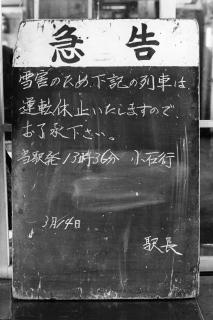 急告
雪害のため、下記の列車は
運転休止いたしますので
お了承下さい。
当駅発13時36分 小石行
3月14日
駅長